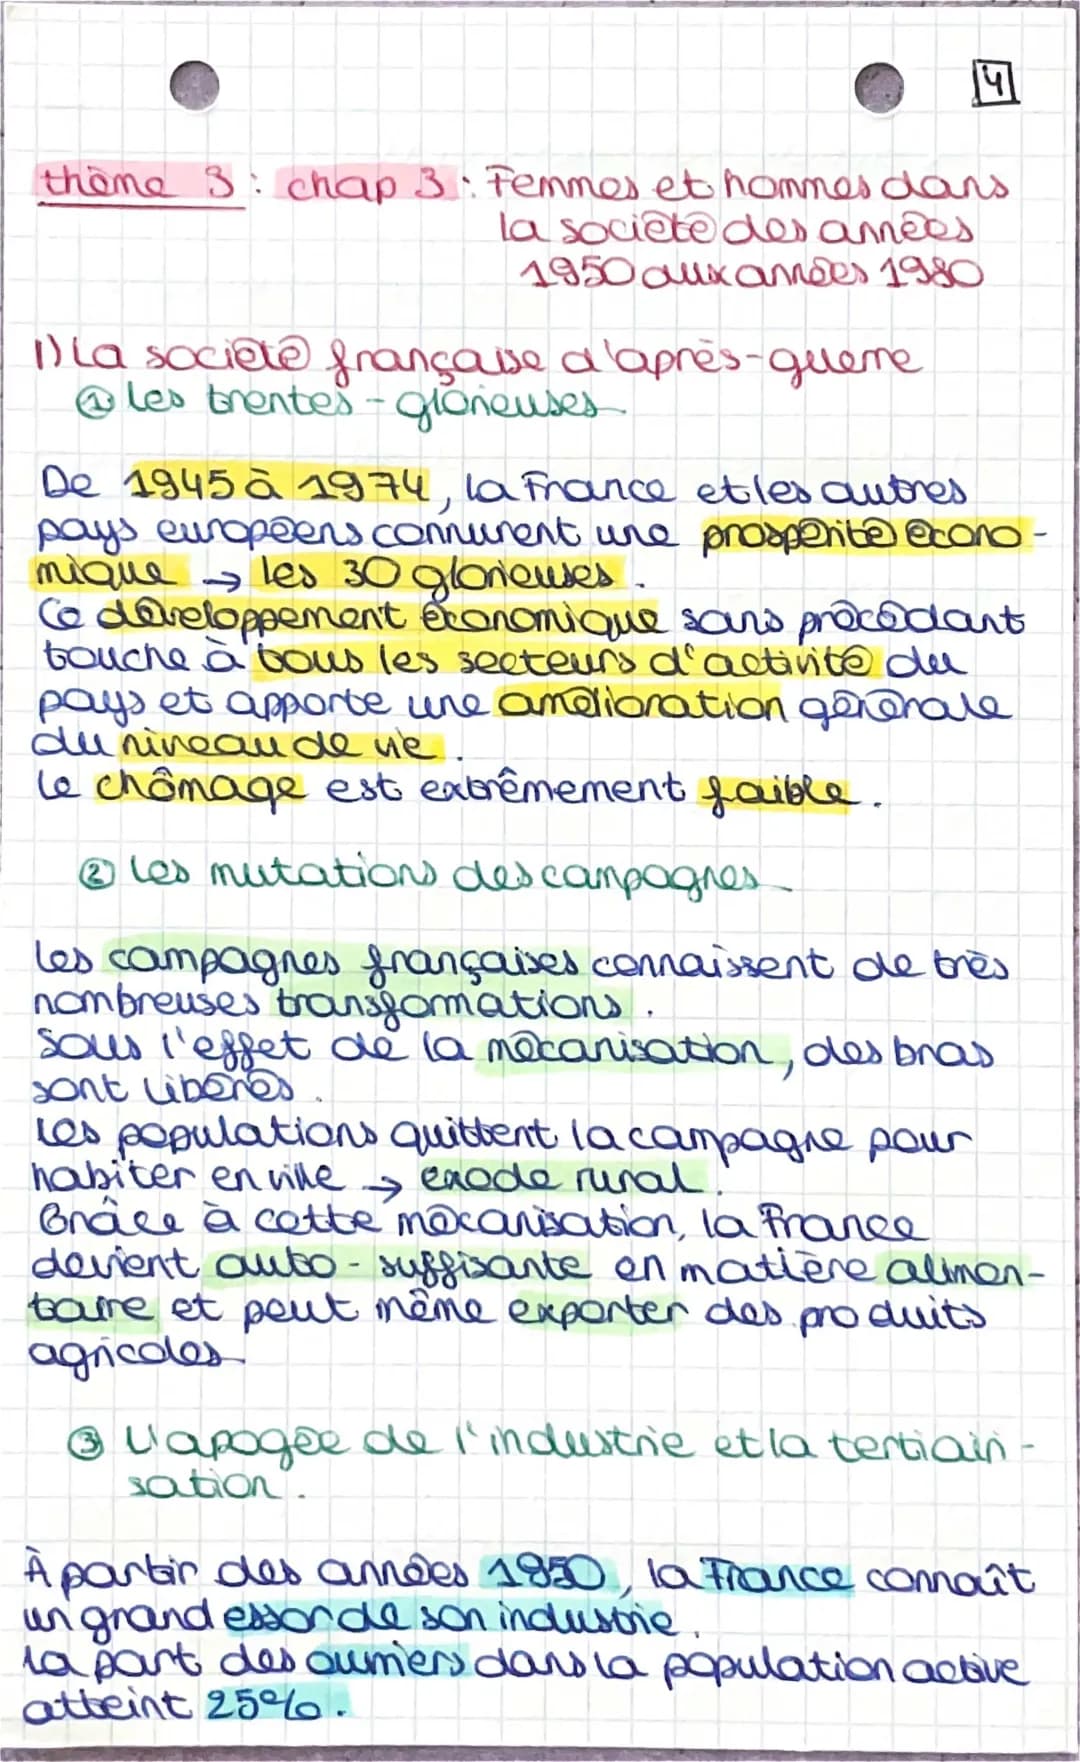 4
thème 3 : chap 3 : Femmes et hommes dans
la société des années
1950 aux années 1980
1) La société française d'après-guerre
① Les trentes-glorieuses
De 1945 à 1974, la France et les autres
pays européens connurent une prospérité écono-
mique → les 30 glorieuses.
Ce développement économique sans précédant
touche à tous les secteurs d'activité du
pays et apporte une amélioration générale
du niveau de vie.
Le chômage est extrêmement faible.
② Les mutations des campagnes
Les campagnes françaises connaissent de très
nombreuses transformations.
Sous l'effet de la mécanisation, des bras
sont libérés.
Les populations quittent la campagne pour
habiter en ville → exode rural.
Grâce à cette mécanisation, la France
devient auto-suffisante en matière alimen-
taire et peut même exporter des produits
agricoles
③ L'apogée de l'industrie et la tertiairi-
sation.
À partir des années 1950, la France connaît
un grand essor de son industrie.
La part des ouvriers dans la population active
atteint 25%.